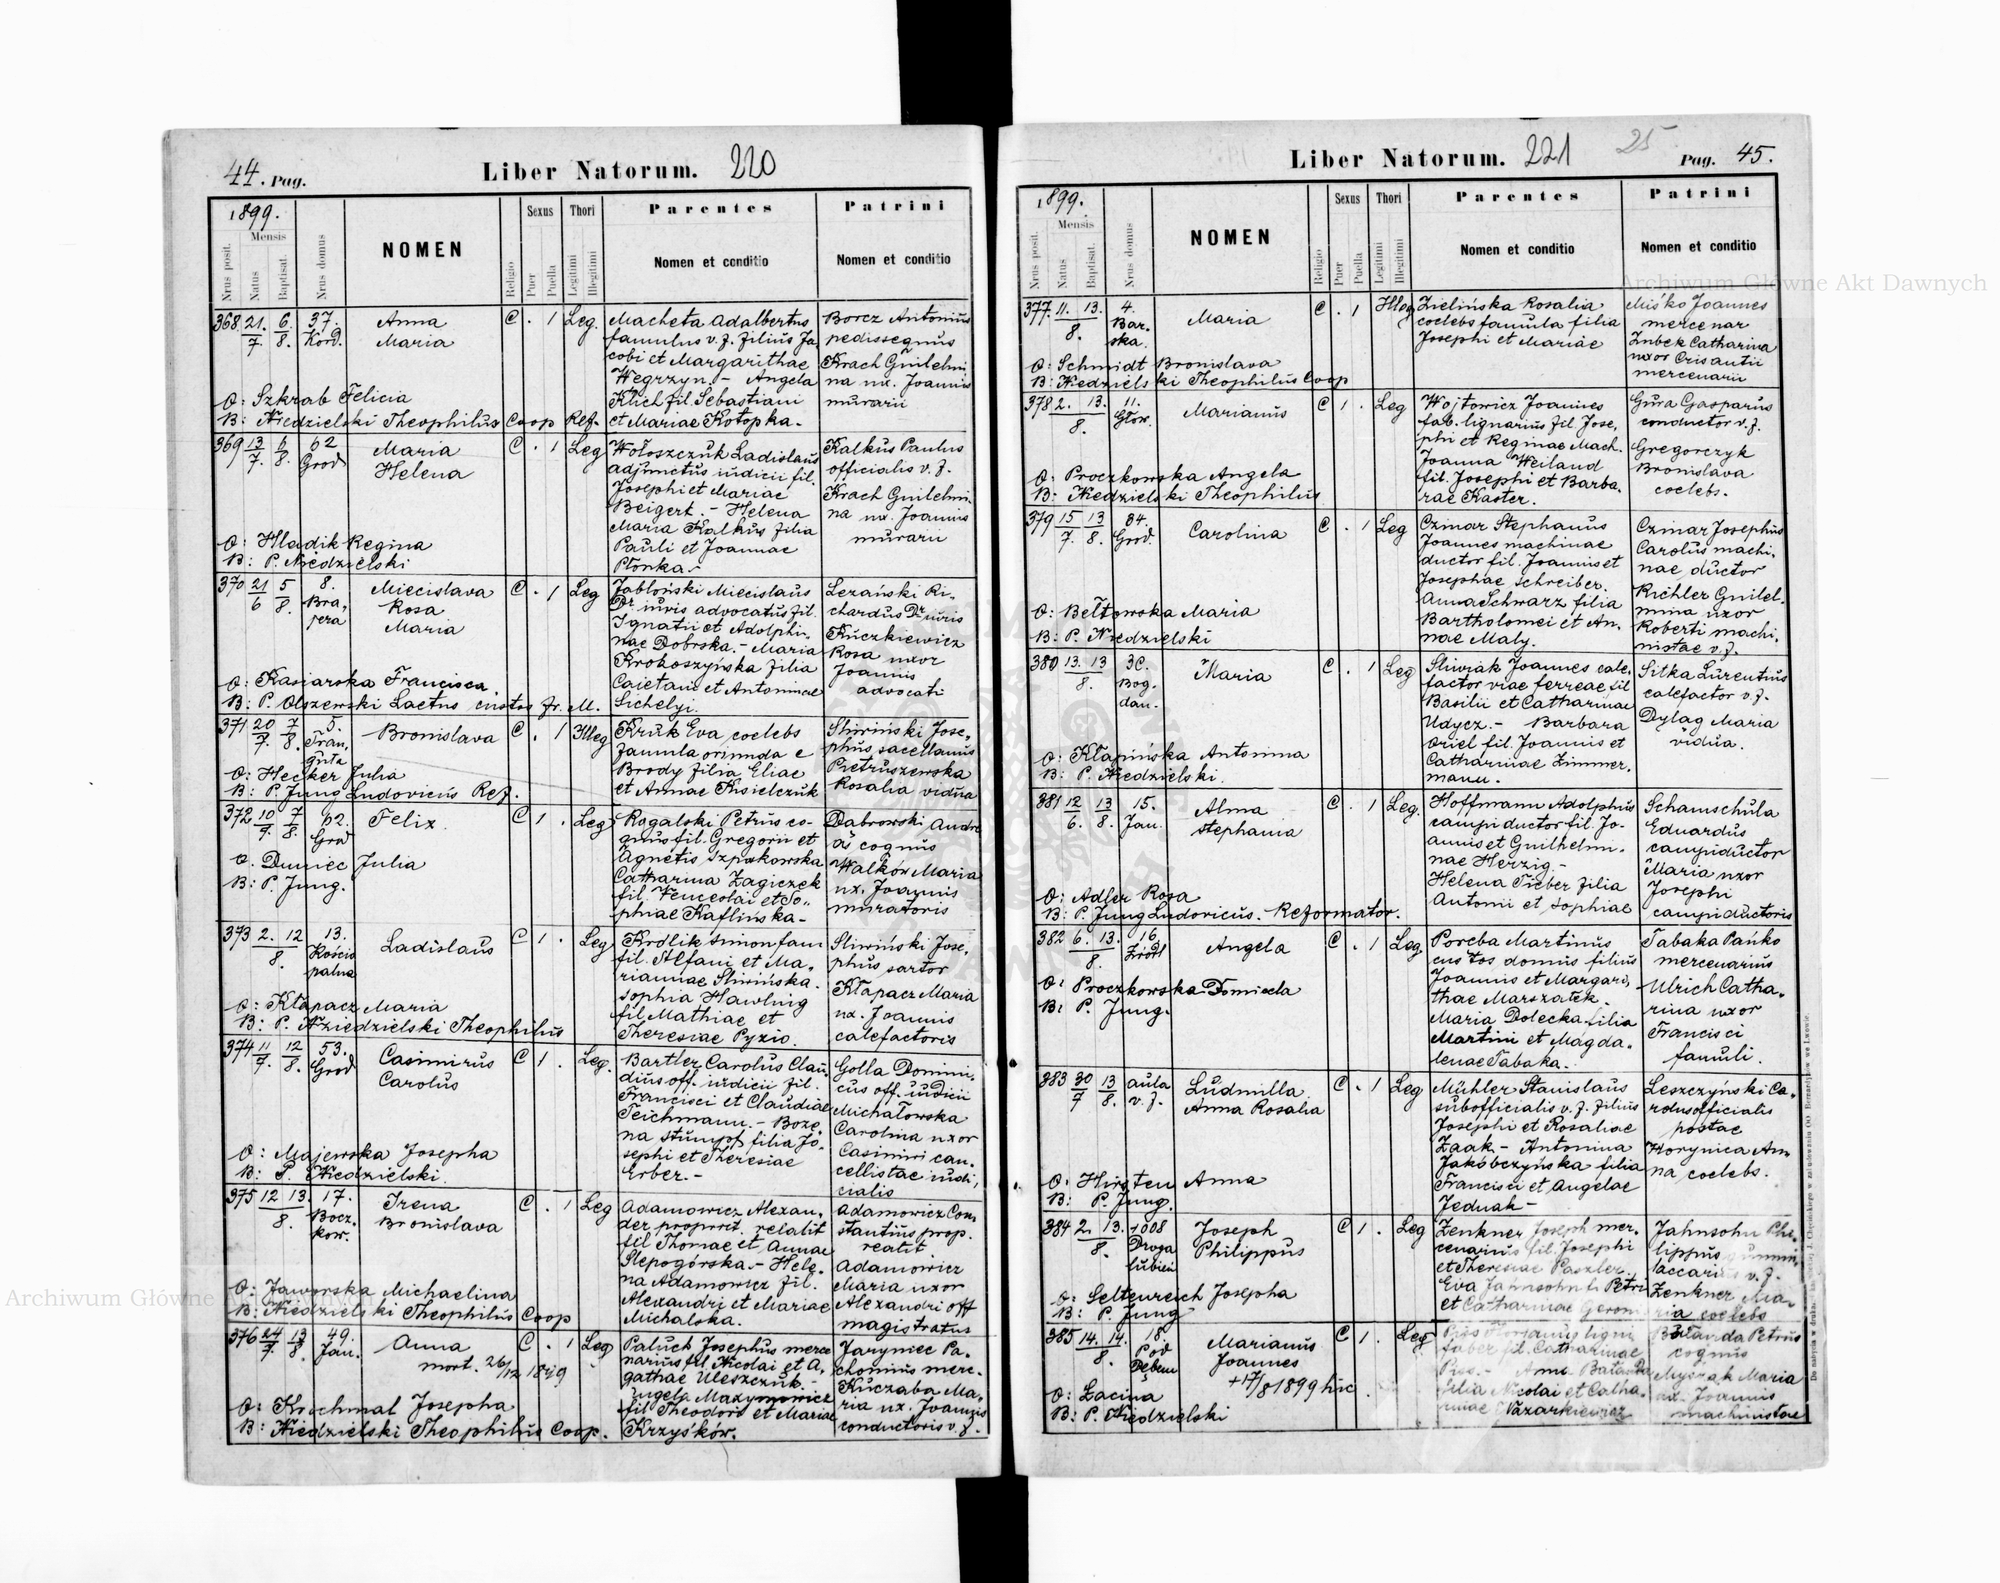 44. Pag. Liber Natorum. 220
1899.
Mensis
Nrus posit.
Natus
Baptisat.
Nrus domus
NOMEN
Religio
Sexus
Puer
Puella
Thori
Legitimi
Illegitimi
Parentes
Nomen et conditio
Patrini
Nomen et conditio
368 21/7 6/8 37. Kord. Anna Maria C . 1 Leg.
Macheta Adalbertus
famulus v. f. filius Ja
cobi et Margarithae
Węgrzyn. – Angela
Klich fil. Sebastiani
et Mariae Kotopka.
Borcz Antonius
pedissequus
Krach Guilelmi
na ux. Joannis
murarii
O: Szkrab Felicia
B: Niedzielski Theophilus Coop Ref.
369 13/7 6/8 62 Grod Maria Helena C . 1 Leg
Wołoszczuk Ladislaus
adjunctus iudicii fil.
Josephi et Mariae
Beigert. – Helena
Maria Kalkus filia
Pauli et Joannae
Płonka. –
Kalkus Paulus
officialis v. f.
Krach Guilelmi
na ux. Joannis
murarii
O: Hladik Regina
B: P. Niedzielski
370 21/6 5/8 8. Bra, jera Miecislava Rosa Maria C . 1 Leg
Jabłoński Miecislaus
Dr iuris advocatus fil.
Ignatii et Adolphi,
nae Dobrska. – Maria
Krokoszyńska filia
Caietani et Antoninae
Sichelyi
Lezański Ri,
chardus Dr iuris
Kuczkiewicz
Rosa uxor
Joannis
advocati
O: Kasiarska Francisca.
B: P. Olszewski Laetus custos fr. M.
371 20/7 7/8 5. Fran, guta Bronislava C . 1 Illeg
Kruk Eva coelebs
famula oriunda e
Brody filia Eliae
et Annae Kisielczuk
Sliwiński Jose,
phus sacellanus
Pietruszewska
Rosalia vidua
O: Hecker Julia
B: P. Jung Ludovicus Ref.
372 10/7 7/8 62. Gro Felix C 1 . Leg
Rogalski Petrus co,
quus fil. Gregorii et
Agnetis Szpakowska
Catharina Zagiczek
fil. Venceslai et So,
phiae Kaflińska –
Dabrowski Andre
as coquus
Walków Maria
ux. Joannis
muratoris
O: Duniec Julia
B: P. Jung.
373 2. 12/8. 13. Kościo palna Ladislaus C 1 . Leg
Królik Simon fam
fil. Stefani et Ma,
riannae Sliwińska.
Sophia Hawling
fil. Mathiae et
Theresiae Pyzio.
Sliwiński Jose,
phus sartor
Kłapacz Maria
ux. Joannis
calefactoris
O: Kłapacz Maria
B: P. Niedzielski Theophilus
374 11/7 12/8 53. Grod Casimirus Carolus C 1 . Leg.
Bartler Carolus Clau
dius off. iudicii fil.
Francisci et Claudiae
Teichmann. – Boże,
na Stumpf filia Jo,
sephi et Theresiae
Erber. –
Golla Domini,
cus off. iudicii
Michałowska
Carolina uxor
Casimiri can,
cellistae iudi,
cialis
O: Majewska Josepha
B: P. Niedzielski.
375 12 13./8. 17. Bocz. kow. Irena Bronislava C . 1 Leg
Adamowicz Alexan,
der propriet. relalit
fil Thomae et Annae
Slepogórska. – Hele,
na Adamowicz fil.
Alexandri et Mariae
Michalska.
Adamowicz Con
stantius prop.
realit.
Adamowicz
Maria uxor
Alexandri off
magistratus
O: Jaworska Michaelina
B: Niedzielski Theophilus Coop
376 24/7. 13/8 49. Jan. Anna C . 1 Leg
mort. 26/12 1899
Paluch Josephus merce
narius fil. Nicolai et A,
gathae Uleszczuk. –
Angela Maxymowicz
fil Theodori et Mariae
Krzyśków.
Jaryniec Pa,
chomius merc.
Kuczaba Ma,
ria ux. Joannis
conductoris v. f.
O: Krochmal Josepha
B: Niedzielski Theophilus Coop.
Liber Natorum. 221 25 Pag. 45.
1899.
Mensis
Nrus posit.
Natus
Baptisat.
Nrus domus
NOMEN
Religio
Sexus
Puer
Puella
Thori
Legitimi
Illegitimi
Parentes
Nomen et conditio
Patrini
Nomen et conditio
377 11. 13./8. 4. Bar. ska. Maria C . 1 Illeg
Zielińska Rosalia
coelebs famula filia
Josephi et Mariae
Miśko Joannes
mercenar
Zubek Catharina
uxor Crisantii
mercenarii
O: Schmidt Bronislava
B: Niedzielski Theophilus Coop
378 2. 13./8. 11. Głow. Marianus C 1 . Leg
Wojtowicz Joannes
fab. lignarius fil Jose,
phi et Reginae Mach.
Joanna Weiland
fil. Josephi et Barba,
rae Kaster.
Gura Gasparus
conductor v. f.
Gregorczyk
Bronislava
coelebs.
O: Proczkowska Angela
B: Niedzielski Theophilus
379 15/7. 13/8. 84. Grod. Carolina C . 1 Leg
Czinar Stephanus
Joannes machinae
ductor fil. Joannis et
Josephae Schreiber.
Anna Schwarz filia
Bartholomei et An,
nae Maly.
Czinar Josephus
Carolus machi,
nae ductor
Richler Guilel,
mina uxor
Roberti machi,
nistae v. f.
O: Bełtowska Maria
B: P. Niedzielski
380 13. 13/8. 30. Bog. dan. Maria C . 1 Leg
Sliwiak Joannes cale,
factor viae ferreae fil
Basilii et Catharinae
Udycz. – Barbara
Oriel fil. Joannis et
Catharinae Zimmer,
mann.
Sitka Laurentius
calefactor v. f.
Dyląg Maria
vidua.
O: Kłapińska Antonina
B: P. Niedzielski.
381 12/6. 13/8. 15. Jan. Alma Stephania C . 1 Leg.
Hoffmann Adolphus
campiductor fil. Jo,
annis et Guilhelmi,
nae Herzig –
Helena Tieber filia
Antonii et Sophiae
Schamschula
Eduardus
campiductor
Maria uxor
Josephi
campiductoris
O: Adler Rosa
B: P. Jung Ludovicus. Reformator.
382 6. 13./8. 16. Zródl Angela C . 1 Leg
Poreba Martinus
custos domus filius
Joannis et Margari,
thae Marszałek.
Maria Dolecka filia
Martini et Magda,
lenae Tabaka.
Tabaka Pańko
mercenarius
Ulrich Catha,
rina uxor
Francisci
famuli.
O: Proczkowska Domicela
B: P. Jung.
383 30/7 13/8. aula v. f. Ludmilla Anna Rosalia C . 1 Leg
Mühler Stanislaus
subofficialis v. f. filius
Josephi et Rosaliae
Zaak – Antonina
Jakóbczyńska filia
Francisci et Angelae
Jednak –
Leszczyński Ca,
rolus officialis
postae
Horynica An
na coelebs.
O: Hirsten Anna
B: P. Jung.
384 2. 13./8. 1008 Droga lubień Joseph Philippus C 1 . Leg
Zenkner Joseph mer,
cenarius fil. Josephi
et Theresiae Paszler.
Eva Jahnsohn f. Petri
et Catharinae Geron
Jahnsohn Phi,
lippus
v. f.
Zenkner Ma,
ria coelebs
O: Seltenreich Josepha
B: P. Jung
385 14. 14./8. 18. Pod Dębem Marianus Joannes C 1 . Leg
+17/8 1899 hic
faber fil. Catharinae
Pies. – Anna
filia Nicolai et Catha,
rinae Nazarkiewicz
Petrus
coquus
Maria
ux. Joannis
machinistae
O: Lacina
B: P. Niedzielski
Archiwum Główne Akt Dawnych
Archiwum Główne